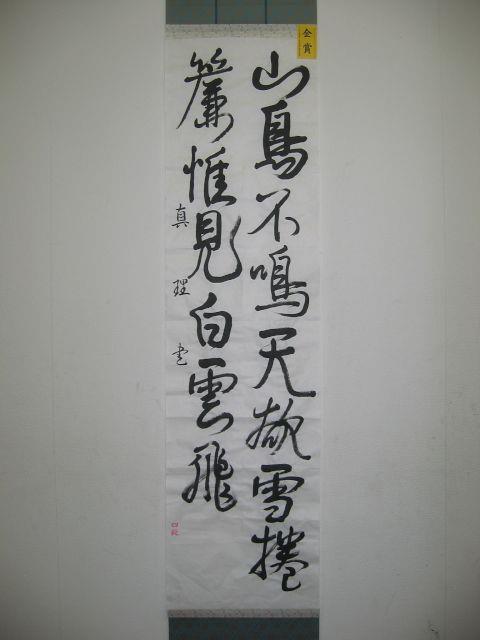 金賞
山鳥不鳴天欲雪捲
簾惟見白雲飛
真理書
四段